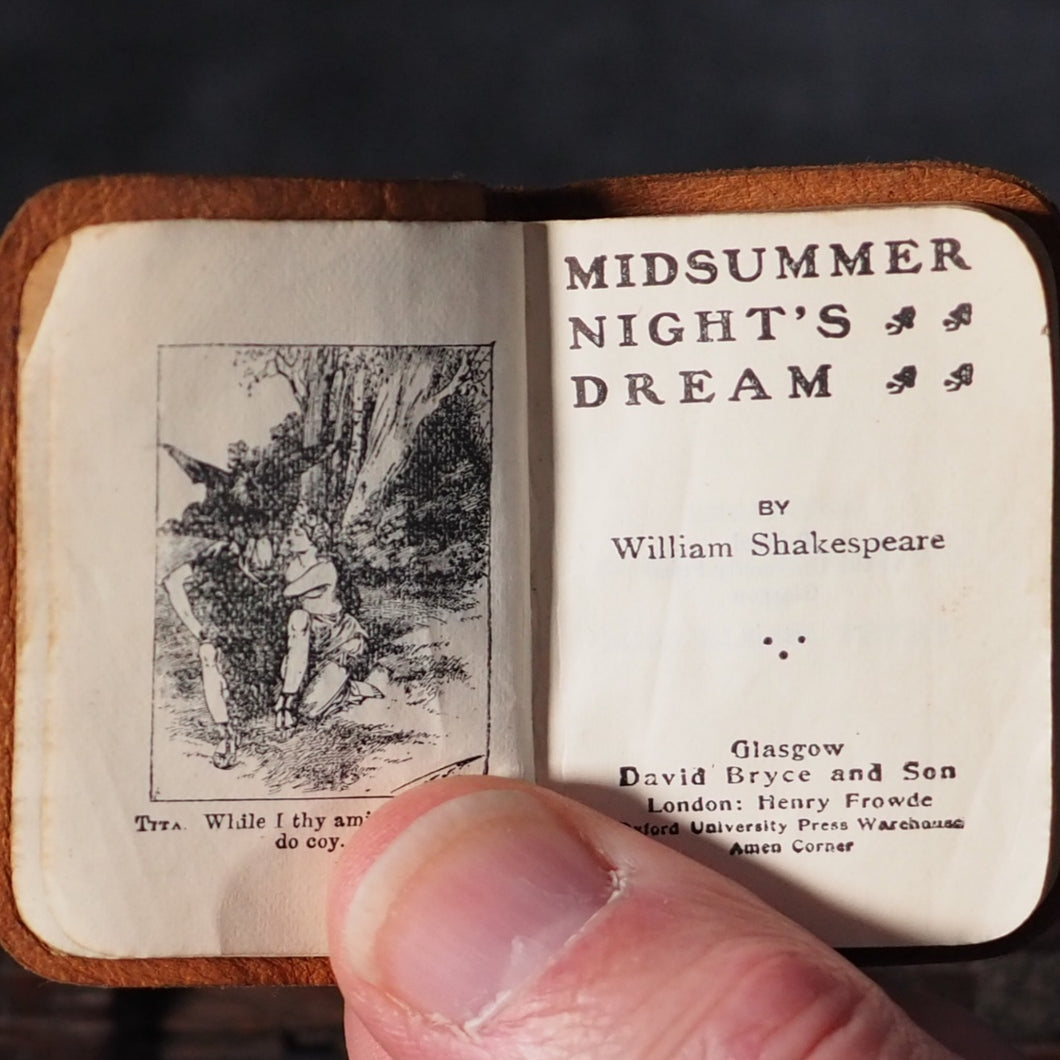 TITA. While I thy
do coy.
MIDSUMMER
NIGHT'S
DREAM
BY
William Shakespeare
Glasgow
David Bryce and Son
London: Henry Frowde
Oxford University Press Warehouse
Amen Corner